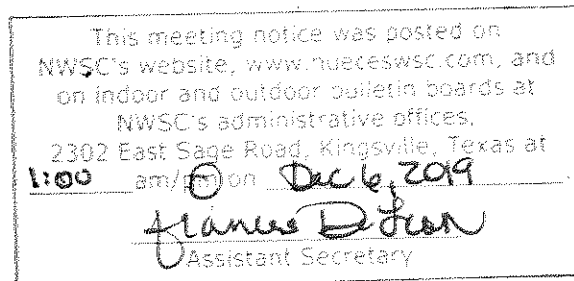 This meeting notice was posted on
NWSC's website, www.nueceswsc.com, and
on indoor and outdoor bulletin boards at
NWSC's administrative offices,
2302 East Sage Road, Kingsville, Texas at
1:00 am/pm on Dec 6, 2019
Frances De Leon
Assistant Secretary